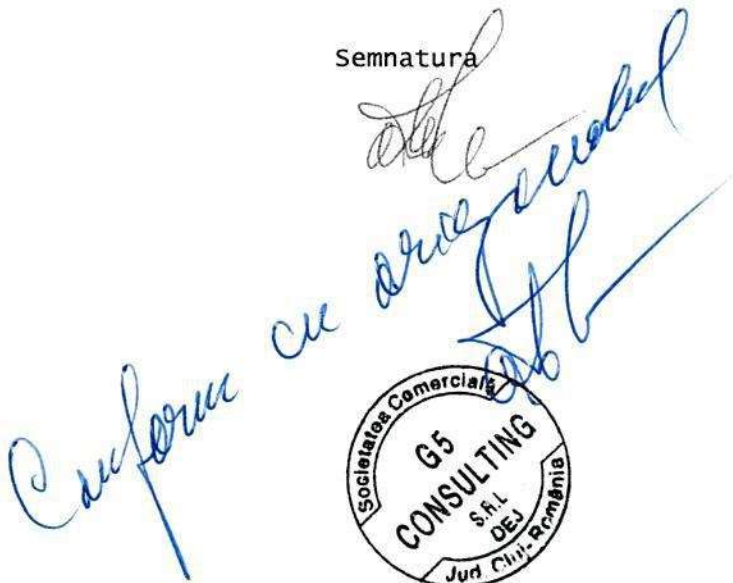 Semnatura
Conform cu originalul
Societatea Comercială
G5
CONSULTING
S.R.L
DEJ
Jud. Cluj-România